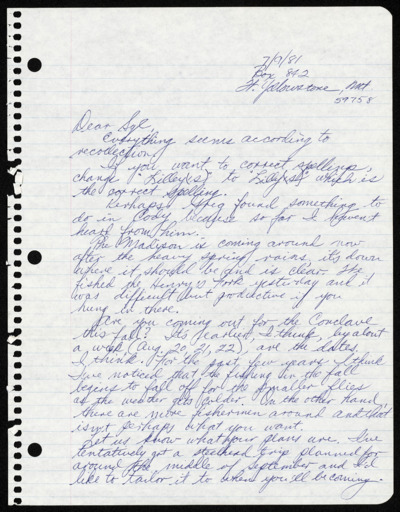 7/9/81
Box 842
W. Yellowstone, Mt.
59758
Dear Syl,
Everything seems according to
recollection,
If you want to correct spelling,
change to which is
the correct spelling.
Perhaps Greg found something to
do in Cody because so far I haven't
heard from them.
The Madison is coming around now
after the heavy spring rains, its down
where it should be and is clear. We
fished the Henry's Fork yesterday and it
was difficult but productive if you
hung in there.
Are you coming out for the Conclave
this fall? Its earlier, I think, by about
a week (Aug. 20, 21, 22), are the dates,
I think. For the past few years I think
I've noticed that the fishing in the fall
begins to fall off for the smaller flies
as the weather gets colder. On the other hand,
there are more fishermen around and that
isn't perhaps what you want.
Let us know what your plans are. I've
tentatively got a steelhead trip planned for
around the middle of September and I'd
like to tailor it to when you'll be coming.